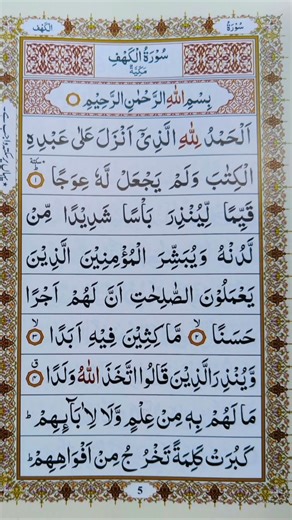 سُوْرَةُ
الْكَهْف
سُوْرَةُ الْكَهْفِ
مَكِّيَّةٌ
بِسْمِ اللّٰهِ الرَّحْمٰنِ الرَّحِيْمِ
اَلْحَمْدُ لِلّٰهِ الَّذِىْۤ اَنْزَلَ عَلٰى عَبْدِهِ
الْكِتٰبَ وَلَمْ يَجْعَلْ لَّهٗ عِوَجًا ١
قَيِّمًا لِّيُنْذِرَ بَاْسًا شَدِيْدًا مِّنْ
لَّدُنْهُ وَيُبَشِّرَ الْمُؤْمِنِيْنَ الَّذِيْنَ
يَعْمَلُوْنَ الصّٰلِحٰتِ اَنَّ لَهُمْ اَجْرًا
حَسَنًا ٢ مَّاكِثِيْنَ فِيْهِ اَبَدًا ٣
وَّيُنْذِرَ الَّذِيْنَ قَالُوا اتَّخَذَ اللّٰهُ وَلَدًا ٤
مَا لَهُمْ بِهٖ مِنْ عِلْمٍ وَّلَا لِاٰبَآئِهِمْ ؕ
كَبُرَتْ كَلِمَةً تَخْرُجُ مِنْ اَفْوَاهِهِمْ ؕ
5